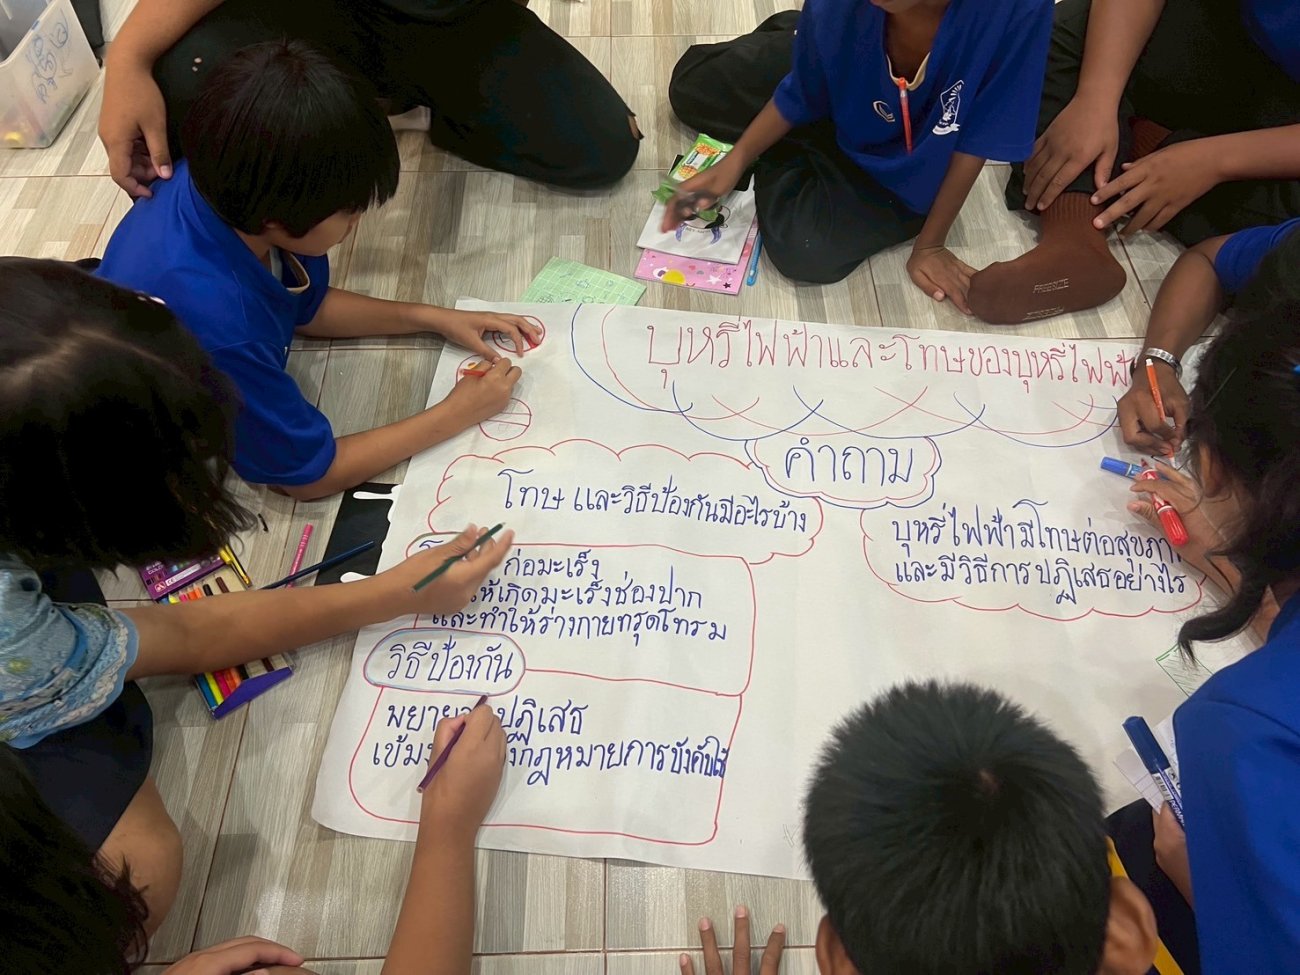 บุหรี่ไฟฟ้าและโทษของบุหรี่ไฟฟ้า
คำถาม
โทษ และวิธีป้องกันมีอะไรบ้าง
บุหรี่ไฟฟ้ามีโทษต่อสุขภา
และมีวิธีการปฏิเสธอย่างไร
ก่อมะเร็ง
ให้เกิดมะเร็งช่องปาก
และทำให้ร่างกายทรุดโทรม
วิธีป้องกัน
ปฏิเสธ
กฎหมายการบังคับใช้
FREESIZE